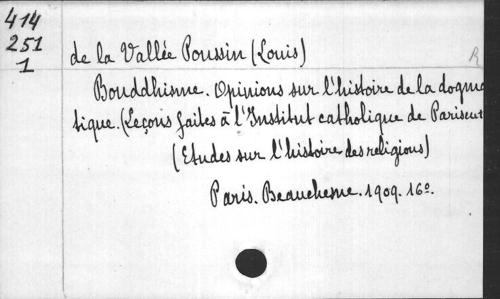 414
251
1
de la Vallée Poussin (Louis)
R
Bouddhisme. Opinions sur l'histoire de la dogma
tique. (Leçons faites à l'Institut catholique de Paris en
(Etudes sur l'histoire des religions)
Paris. Beauchesne. 1909. 16º.